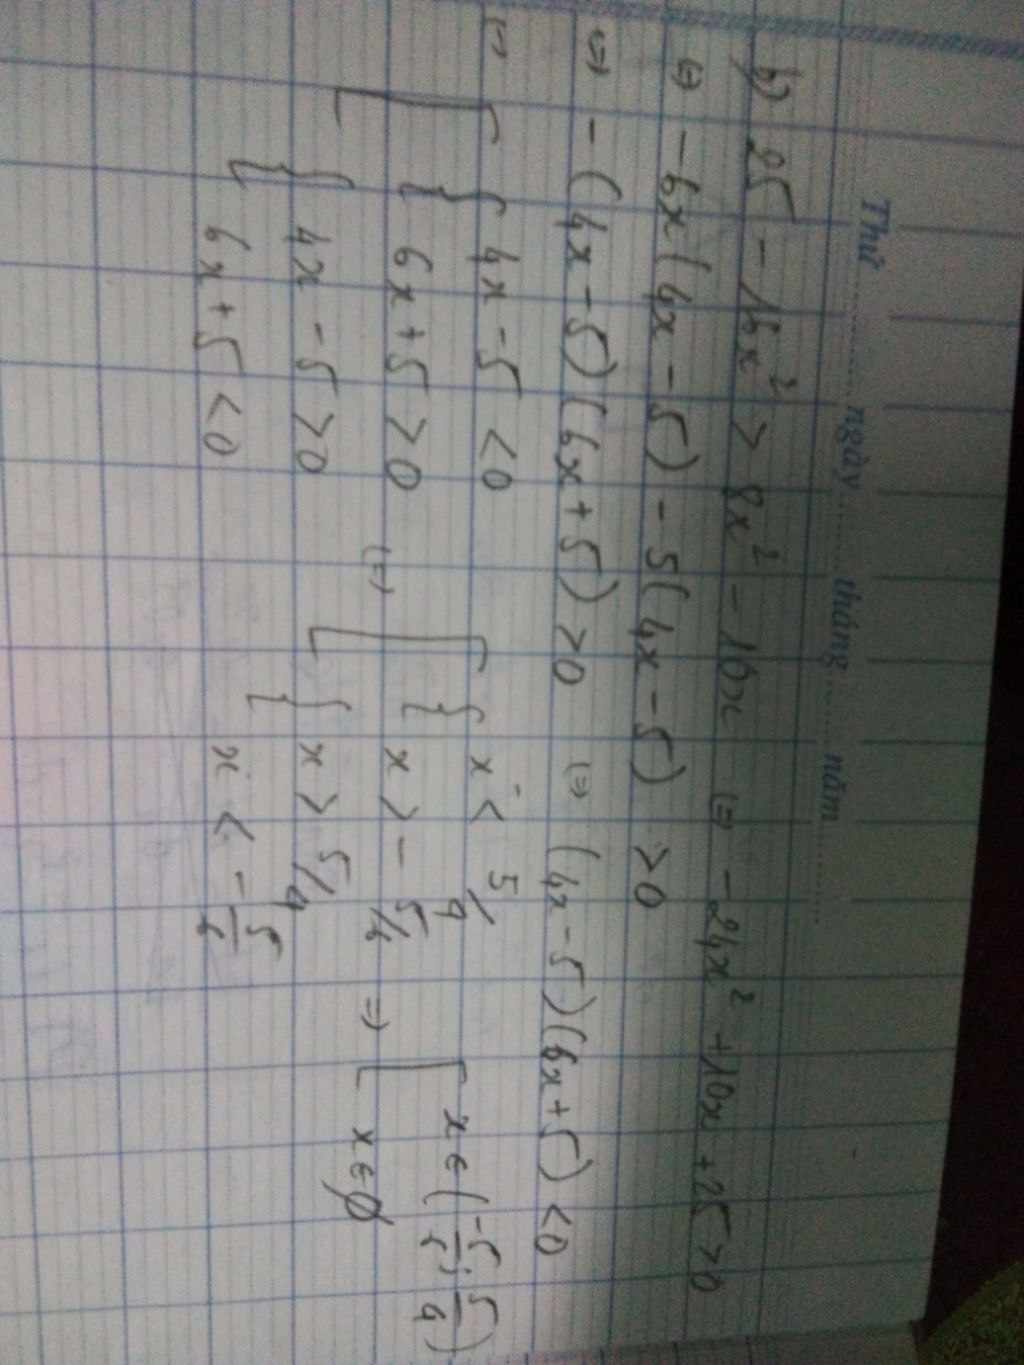 Thứ ........ ngày ........ tháng ........ năm ........
b) 25 - 16x² > 8x² - 10x ⇔ -24x² + 10x + 25 > 0
⇔ -6x(4x - 5) - 5(4x - 5) > 0
⇔ -(4x - 5)(6x + 5) > 0 ⇔ (4x - 5)(6x + 5) < 0
⇔ [ { 4x - 5 < 0
6x + 5 > 0
{ 4x - 5 > 0
6x + 5 < 0
⇔ [ { x < 5/4
x > -5/6
{ x > 5/4
x < -5/6
⇒ [ x ∈ (-5/6; 5/4)
x ∈ ∅